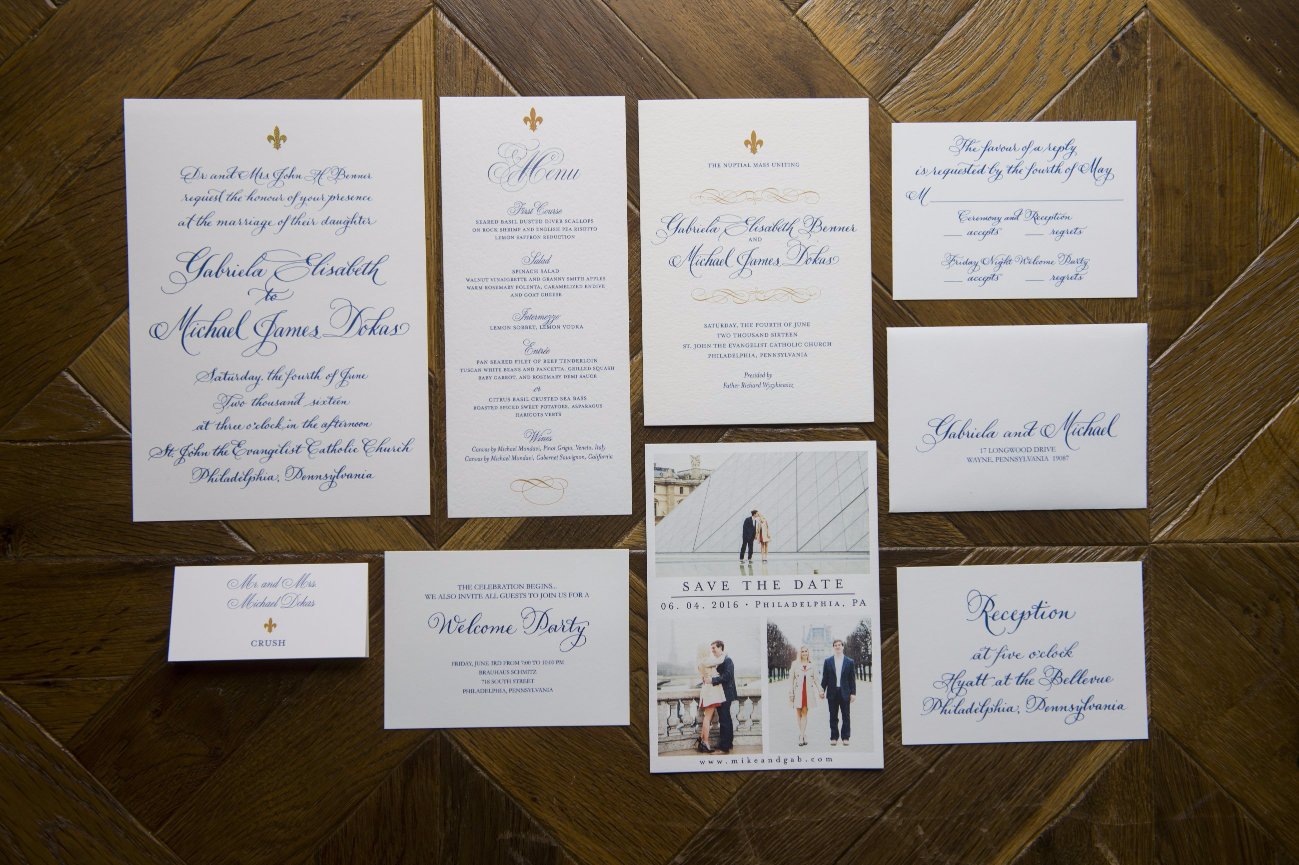 Dr and Mrs John H Benner
request the honour of your presence
at the marriage of their daughter
Gabriela Elisabeth
to
Michael James Dokas
Saturday, the fourth of June
Two thousand sixteen
at three o'clock in the afternoon
St. John the Evangelist Catholic Church
Philadelphia, Pennsylvania
Menu
First Course
SEARED BASIL DUSTED DIVER SCALLOPS
ON ROCK SHRIMP AND ENGLISH PEA RISOTTO
LEMON SAFFRON REDUCTION
Salad
SPINACH SALAD
WALNUT VINAIGRETTE AND GRANNY SMITH APPLES
WARM ROSEMARY POLENTA, CARAMELIZED ENDIVE
AND GOAT CHEESE
Intermezzo
LEMON SORBET, LEMON VODKA
Entrée
PAN SEARED FILET OF BEEF TENDERLOIN
TUSCAN WHITE BEANS AND PANCETTA, GRILLED SQUASH
BABY CARROT, AND ROSEMARY DEMI SAUCE
or
CITRUS BASIL CRUSTED SEA BASS
ROASTED SPICED SWEET POTATOES, ASPARAGUS
HARICOTS VERTS
Wines
Canvas by Michael Mondavi, Pinot Grigio, Veneto, Italy
Canvas by Michael Mondavi, Cabernet Sauvignon, California
THE NUPTIAL MASS UNITING
Gabriela Elisabeth Benner
AND
Michael James Dokas
SATURDAY, THE FOURTH OF JUNE
TWO THOUSAND SIXTEEN
ST. JOHN THE EVANGELIST CATHOLIC CHURCH
PHILADELPHIA, PENNSYLVANIA
Presided by
Father Richard
The favour of a reply
is requested by the fourth of May
M
Ceremony and Reception
accepts regrets
Friday Night Welcome Party
accepts regrets
Gabriela and Michael
17 LONGWOOD DRIVE
WAYNE, PENNSYLVANIA 19087
Mr. and Mrs.
Michael Dokas
CRUSH
THE CELEBRATION BEGINS...
WE ALSO INVITE ALL GUESTS TO JOIN US FOR A
Welcome Party
FRIDAY, JUNE 3RD FROM 7:00 TO 10:00 PM
BRAUHAUS SCHMITZ
718 SOUTH STREET
PHILADELPHIA, PENNSYLVANIA
SAVE THE DATE
06. 04. 2016 • PHILADELPHIA, PA
www.mikeandgab.com
Reception
at five o'clock
Hyatt at the Bellevue
Philadelphia, Pennsylvania